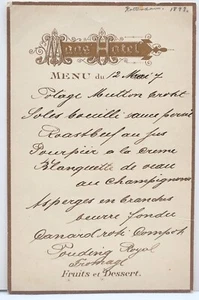 1898.
Maas Hotel
MENU du 12 Mai 7
Potage Mutton Broht
Soles bouilli sauce persil
Roastbeef au jus
Pourpier a la Creme
Blanquette de veau
au Champignons
Asperges en branches
beurre fondu
Canard roti Compote
Pouding Royal
Fromage
Fruits et Dessert.